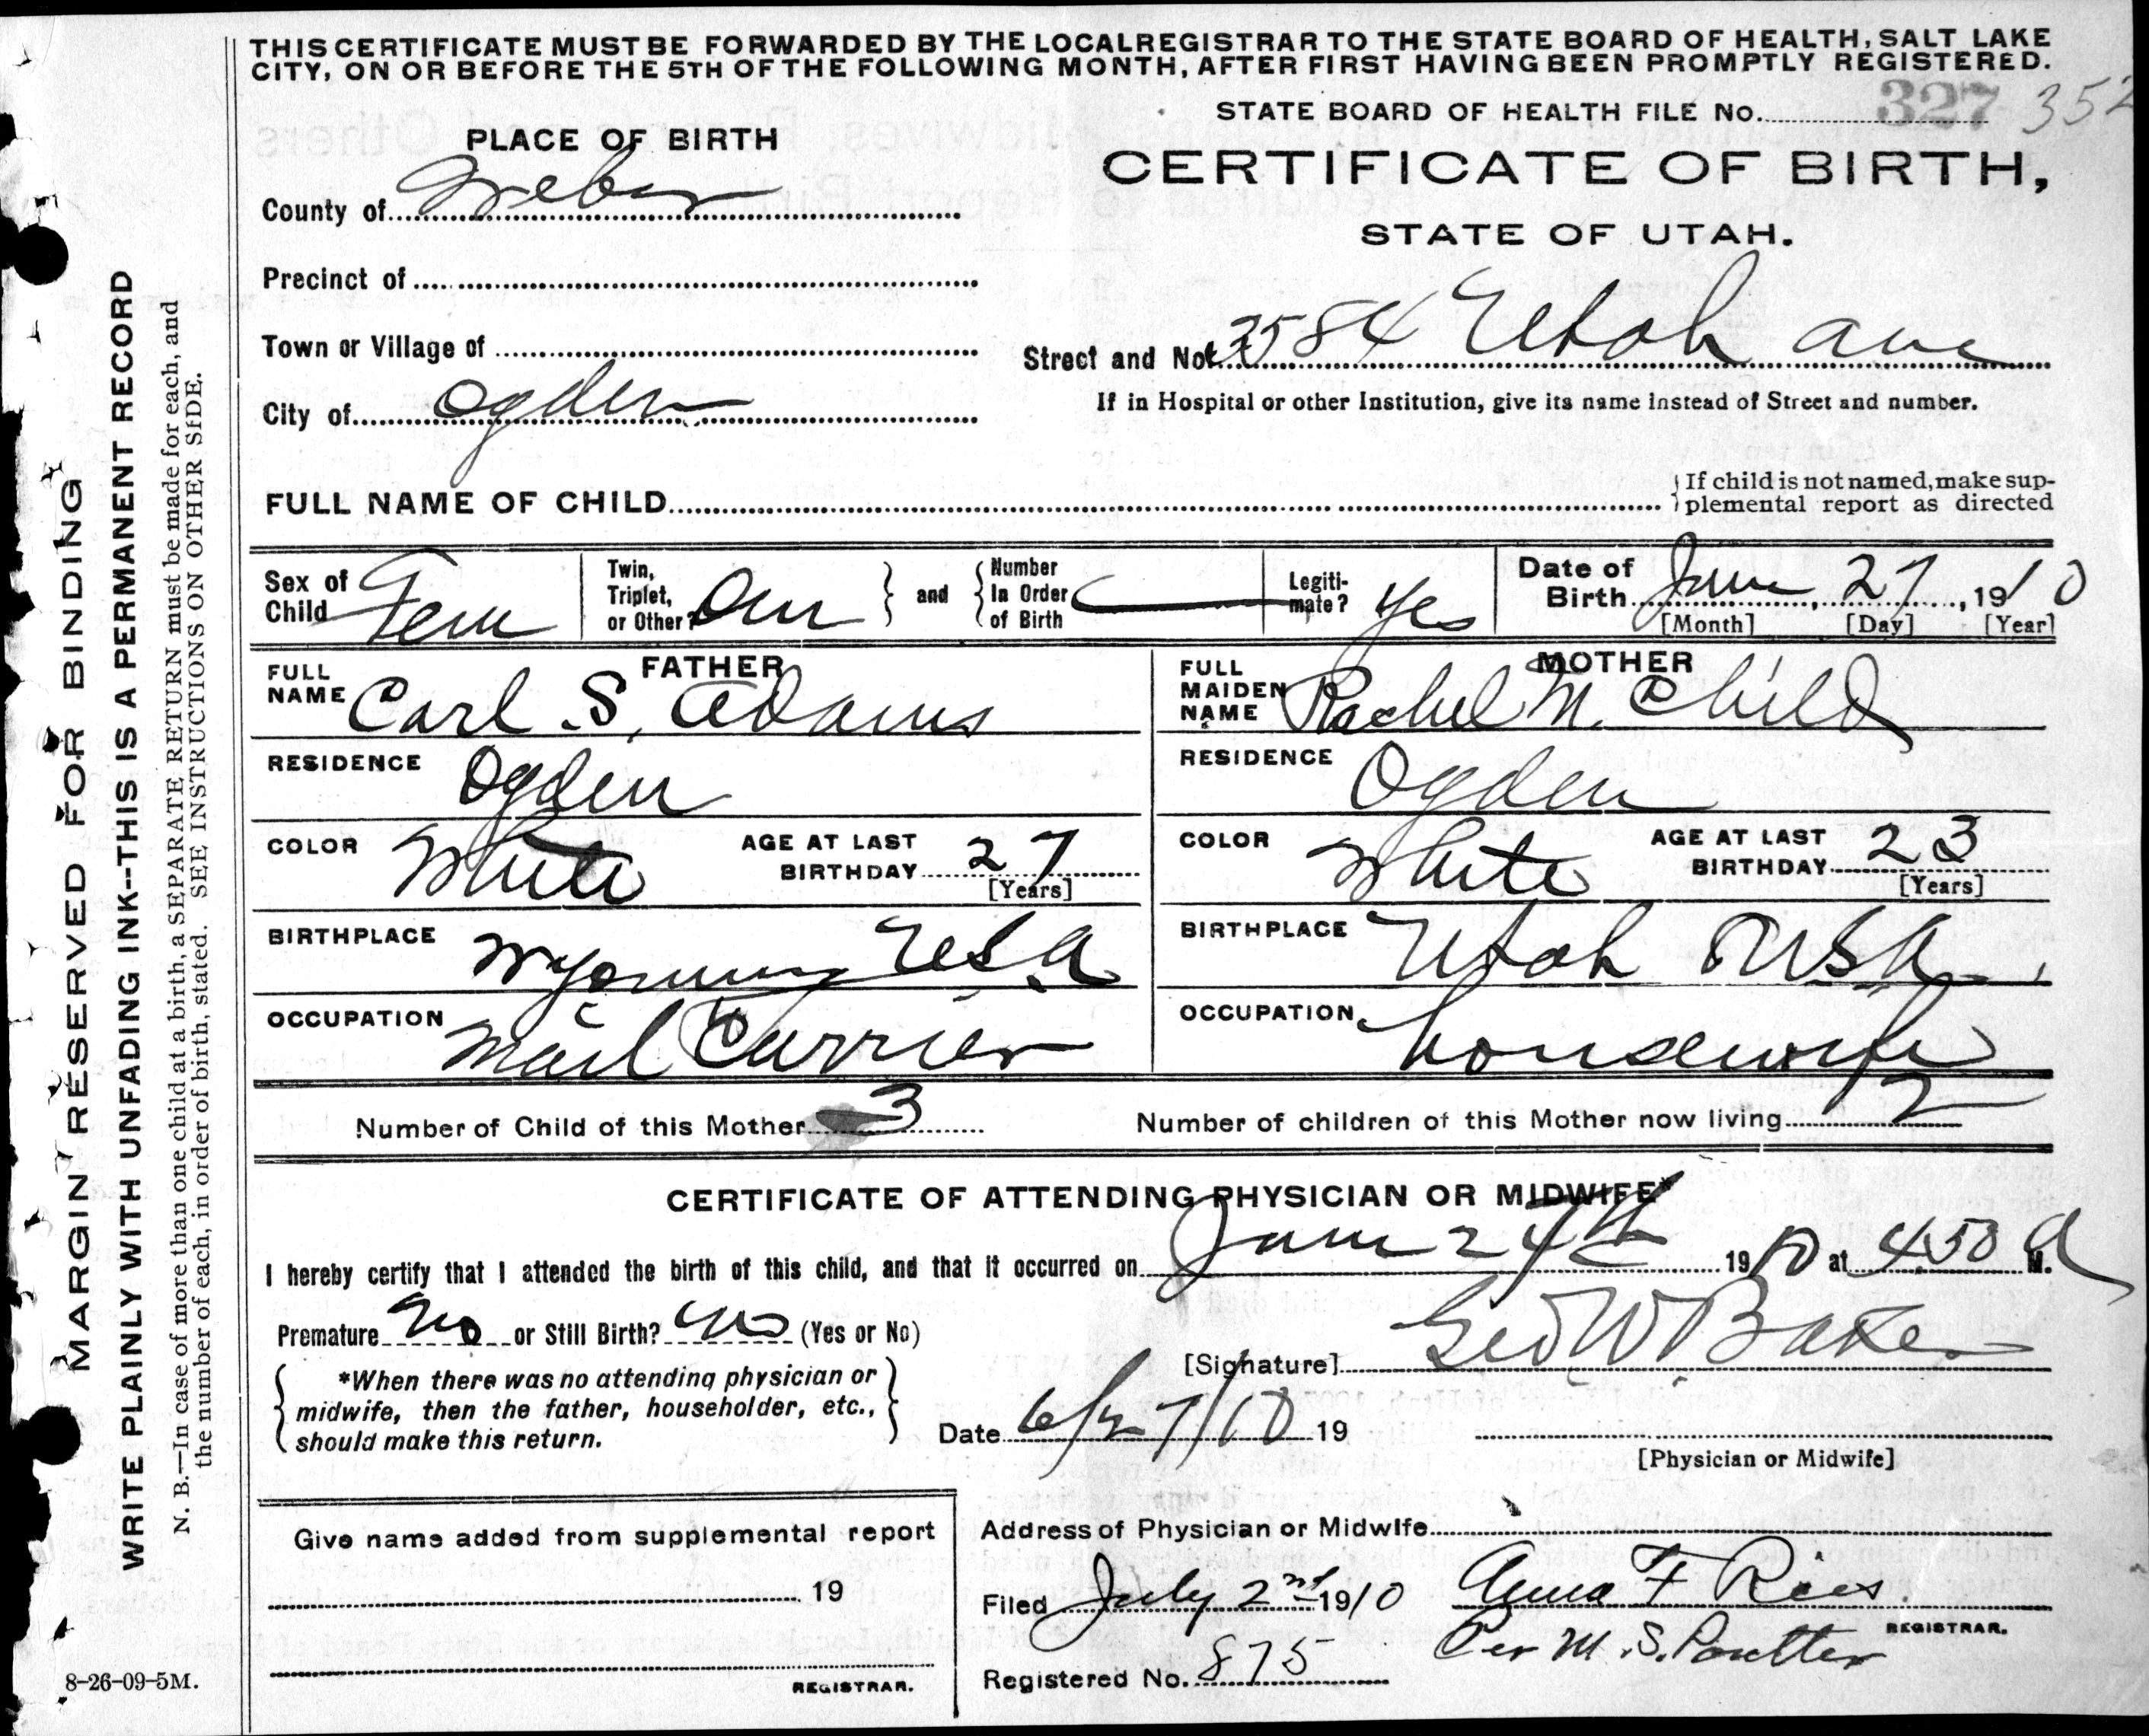 THIS CERTIFICATE MUST BE FORWARDED BY THE LOCAL REGISTRAR TO THE STATE BOARD OF HEALTH, SALT LAKE
CITY, ON OR BEFORE THE 5TH OF THE FOLLOWING MONTH, AFTER FIRST HAVING BEEN PROMPTLY REGISTERED.
STATE BOARD OF HEALTH FILE No. 327 352
PLACE OF BIRTH
CERTIFICATE OF BIRTH,
STATE OF UTAH.
County of Weber
Precinct of
Town or Village of
Street and No. 3584 Utah ave
City of Ogden
If in Hospital or other Institution, give its name instead of Street and number.
FULL NAME OF CHILD
If child is not named, make sup-
plemental report as directed
Sex of Child Fem
Twin, Triplet, or Other? One
and
Number In Order of Birth
Legiti-mate? Yes
Date of Birth June, 27, 1910
[Month] [Day] [Year]
FATHER
FULL NAME Carl S. Adams
RESIDENCE Ogden
COLOR White
AGE AT LAST BIRTHDAY 27
[Years]
BIRTHPLACE Wyoming U.S.A
OCCUPATION Mail Carrier
MOTHER
FULL MAIDEN NAME Rachel N. Child
RESIDENCE Ogden
COLOR White
AGE AT LAST BIRTHDAY 23
[Years]
BIRTHPLACE Utah USA
OCCUPATION housewife
Number of Child of this Mother 3
Number of children of this Mother now living 2
CERTIFICATE OF ATTENDING PHYSICIAN OR MIDWIFE*
I hereby certify that I attended the birth of this child, and that it occurred on June 24th 1910 at 4.50 A M.
Premature No or Still Birth? No (Yes or No)
[Signature] Geo W Baker
*When there was no attending physician or
midwife, then the father, householder, etc.,
should make this return.
Date 6/27/10 19
[Physician or Midwife]
Give name added from supplemental report
19
REGISTRAR.
Address of Physician or Midwife
Filed July 2nd 1910 Anna F Rees
REGISTRAR.
Per M. S. Poulter
Registered No. 875
8-26-09-5M.
MARGIN RESERVED FOR BINDING
WRITE PLAINLY WITH UNFADING INK--THIS IS A PERMANENT RECORD
N. B.—In case of more than one child at a birth, a SEPARATE RETURN must be made for each, and
the number of each, in order of birth, stated. SEE INSTRUCTIONS ON OTHER SIDE.